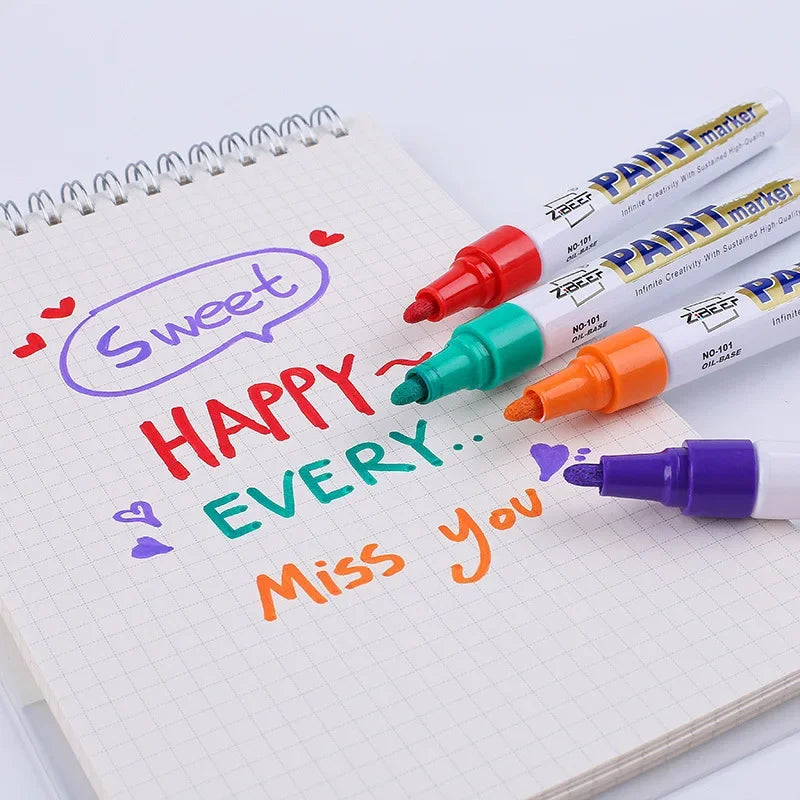 Sweet
HAPPY~
EVERY..
Miss You
ZiBEER PAINT marker
Infinite Creativity With Sustained High-Quality
NO-101
OIL-BASE
ZiBEER PAINT marker
Infinite Creativity With Sustained High-Quality
NO-101
OIL-BASE
ZiBEER PA
NO-101
OIL-BASE